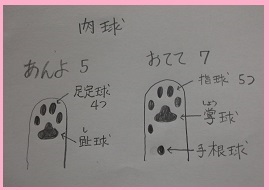 肉球
あんよ 5
足足球
4つ
し
趾球
おてて 7
指球 5つ
しょう
掌球
手根球